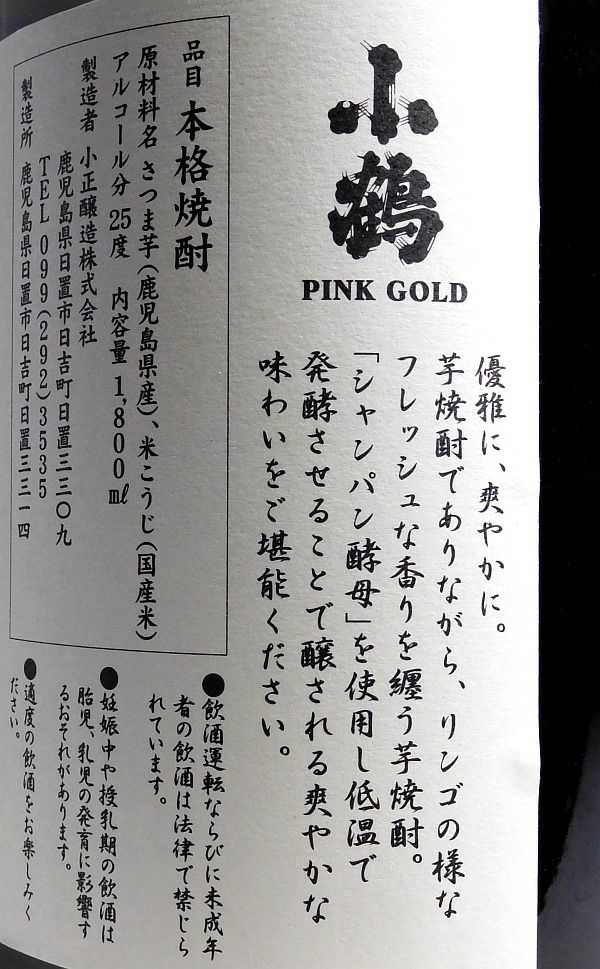 小鶴
PINK GOLD
優雅に、爽やかに。
芋焼酎でありながら、リンゴの様な
フレッシュな香りを纏う芋焼酎。
「シャンパン酵母」を使用し低温で
発酵させることで醸される爽やかな
味わいをご堪能ください。
品目 本格焼酎
原材料名 さつま芋(鹿児島県産)、米こうじ(国産米)
アルコール分 25度 内容量 1,800㎖
製造者 小正醸造株式会社
鹿児島県日置市日吉町日置三三〇九
TEL 099(292)3535
製造所 鹿児島県日置市日吉町日置三三一四
●飲酒運転ならびに未成年
者の飲酒は法律で禁じら
れています。
●妊娠中や授乳期の飲酒は
胎児、乳児の発育に影響す
るおそれがあります。
●適度の飲酒をお楽しみく
ださい。